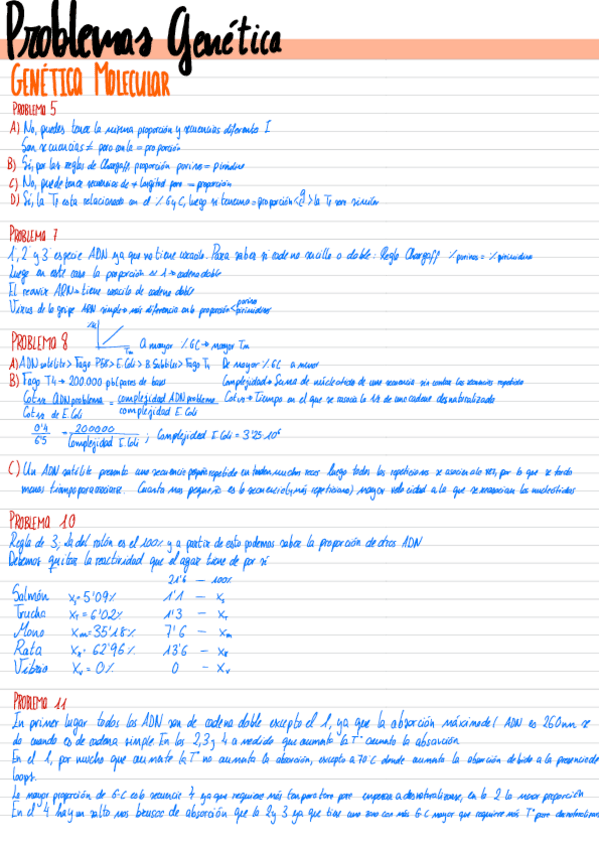 Problemas Genética
GENÉTICA MOLECULAR
PROBLEMA 5
A) No, puedes tener la misma proporción y secuencias diferentes I
Son secuencias ≠ pero con la = proporción
B) Sí, por las reglas de Chargaff proporción purinas = pirimidinas
C) No, puede tener secuencias de ≠ longitud pero = proporción
D) Sí, la Tª esta relacionada con el % G y C, luego si tenemos = proporción la Tª son similar
PROBLEMA 7
1, 2 y 3 especie ADN ya que no tiene uracilo. Para saber si cadena sencilla o doble: Regla Chargaff % purinas = % pirimidinas
Luego en este caso la proporción ≈ 1 → cadena doble
El reovirus ARN → tiene uracilo de cadena doble
Virus de la gripe ARN simple → más diferencia en la proporción purinas pirimidinas
PROBLEMA 8 Tm A mayor % GC → mayor Tm
A) ADN satélite > Fago P58 > E. Coli > B. Subtilis > Fago T4 De mayor % GC a menor
B) Fago T4 → 200.000 pb (pares de bases Complejidad → Suma de nucleótidos de una secuencia sin contar las secuencias repetidas
Cot1/2 ADN problema = complejidad ADN problema Cot1/2 → Tiempo en el que se reasocia la 1/2 de una cadena desnaturalizada
Cot1/2 de E. Coli complejidad E. Coli
0'4 = 200000 ; Complejidad E. Coli = 3'25·10⁶
6'5 Complejidad E. Coli
C) Un ADN satélite presenta una secuencia pequeña repetida en tandem muchas veces luego todas las repeticiones se asocian a la vez, por lo que se tarda
menos tiempo para asociarse. Cuanto mas pequeña es la secuencia (y más repeticiones) mayor velocidad a la que se reasocian los nucleótidos
PROBLEMA 10
Regla de 3, la del ratón es el 100% y a partir de esto podemos saber la proporción de otros ADN
Debemos quitar la reactividad que el agar tiene de por sí
21'6 — 100%
Salmón Xs = 5'09% 1'1 — Xs
Trucha XT = 6'02% 1'3 — XT
Mono Xm = 35'18% 7'6 — Xm
Rata XR = 62'96% 13'6 — XR
Vibrio Xv = 0% 0 — Xv
PROBLEMA 11
En primer lugar todos los ADN son de cadena doble excepto el 1, ya que la absorción máxima del ADN es 260nm se
da cuando es de cadena simple. En los 2, 3 y 4 a medida que aumenta la Tª aumenta la absorción
En el 1, por mucho que aumente la Tª no aumenta la absorción, excepto a 70ºC donde aumenta la absorción debido a la presencia de
loops.
La mayor proporción de G-C es la secuencia 4 ya que requiere más temperatura para empezar a desnaturalizarse, en la 2 la menor proporción
En el 4 hay un salto mas brusco de absorción que la 2 y 3 ya que tiene una zona con más G-C mayor que requiere más Tª para desnaturalizar